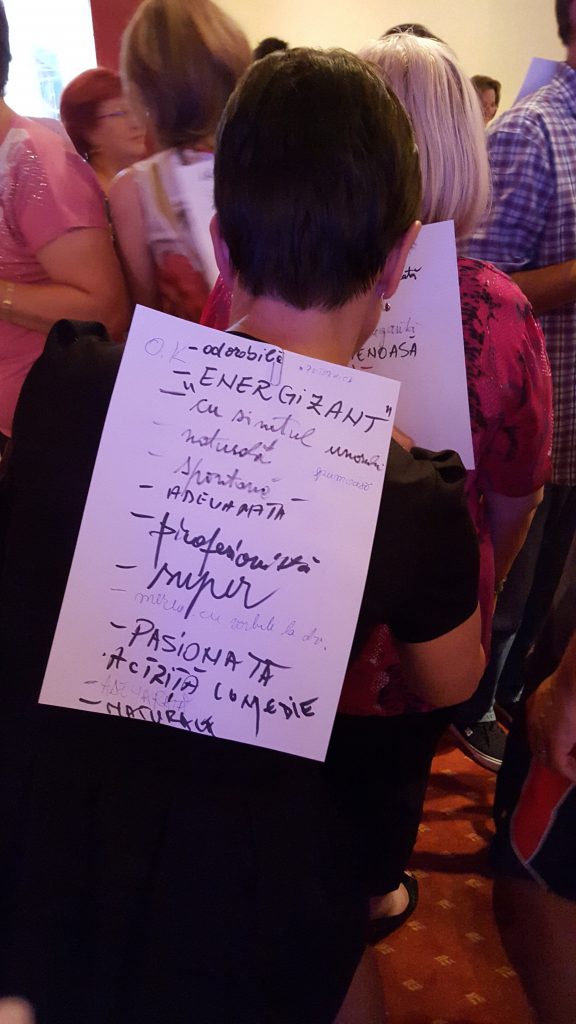 O.K
- adorabilă
- „ENERGIZANT"
- cu simțul umorului
- naturală
- spontană -
frumoasă
- ADEVARATA
- profesionistă
- super
- mereu cu vorbele la
- PASIONATA
. ACTRIȚĂ COMEDIE
- NATURALĂ
ENOASA